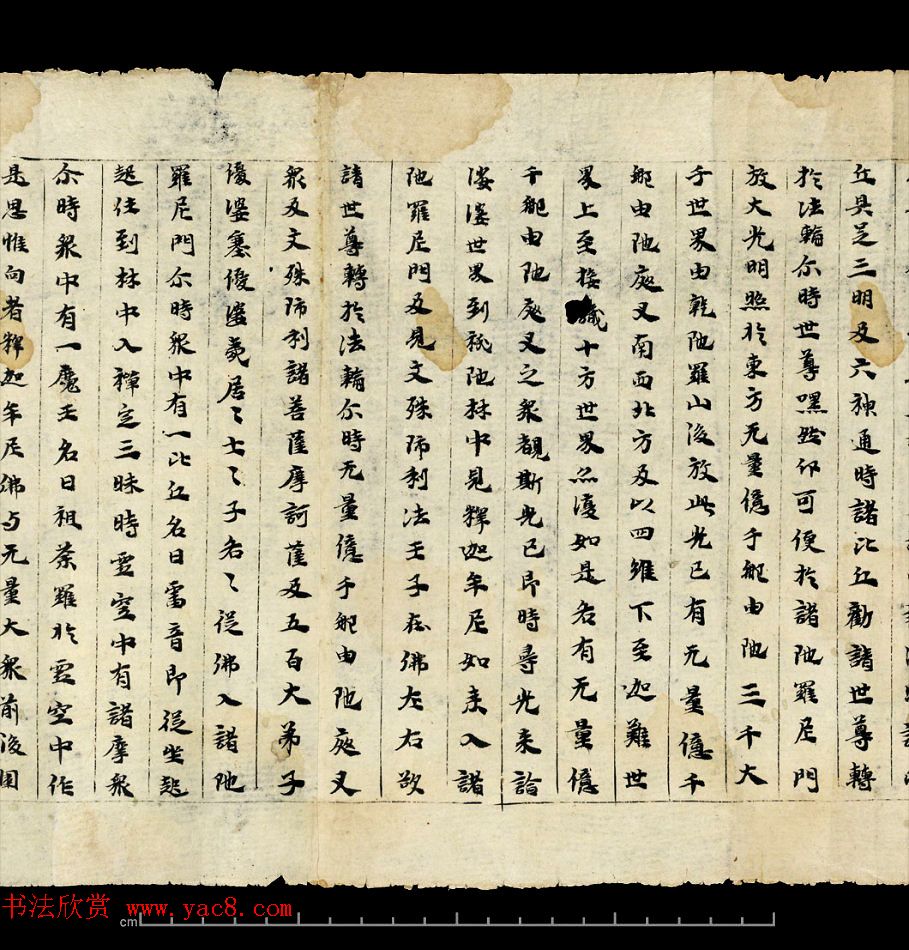 丘具足三明及六神通時諸比丘勸請世尊轉
於法輪尒時世尊嘿然印可便於諸陁羅尼門
放大光明照於東方无量億千那由陁三千大
千世界由乾陁羅山後放此光已有无量億千
那由陁夜叉南西北方及以四維下至迦難世
界上至接識十方世界亦復如是各有无量億
千那由陁夜叉之衆覩斯光已即時尋光来詣
娑婆世界到祇陁林中見釋迦牟尼如来入諸
陁羅尼門及見文殊師利法王子在佛左右勸
請世尊轉於法輪尒時无量億千那由陁夜叉
衆及文殊師利諸菩薩摩訶薩及五百大弟子
優婆塞優婆夷居〻士〻子各〻從佛入諸陁
羅尼門尒時衆中有一比丘名曰雷音即從坐起
起住到林中入禪定三昧時虛空中有諸摩衆
尒時衆中有一魔王名曰祖荼羅於虛空中作
是思惟向者釋迦牟尼佛与无量大衆前後圍
书法欣赏 www.yac8.com
cm